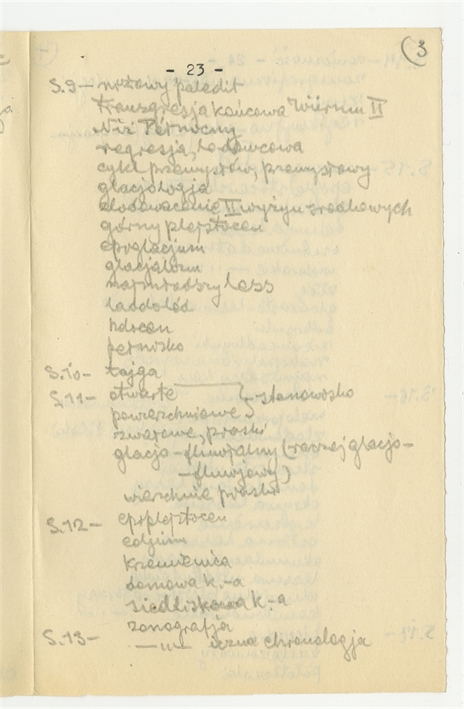 3
- 23 -
S.9 - wczesny paleolit
transgresja końcowa Würmu II
Niż Północny
regresja lodowcowa
cykl przemysłów, przemysłowy
glacjologia
zlodowacenie II wyżyn środkowych
górny plejstocen
epiglacjum
glacjalizm
najmłodszy less
lądolód
holocen
petnisko
S.10 - tajga
S.11 - otwarte
powierzchniowe } - stanowisko
zwarowe, piaski
glacjo-fluwjalny (raczej glacjo-
-fluwjowy)
wierzchnie piaski
S.12 - epiplejstocen
eolium
krzemienica
domowa k.-a
siedliskowa k.-a
zonografja
S.13 - —„— iczna chronologja